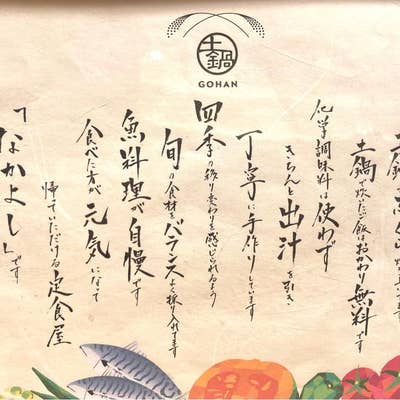 土鍋
GOHAN
土鍋で炊いたご飯はおかわり無料です
化学調味料は使わず
きちんと出汁を引き
丁寧に手作りしています
四季の移り変わりを感じられるよう
旬の食材をバランスよく採り入れてます
魚料理が自慢です
食べた方が元気になって
帰っていただける定食屋
「なかよし」です